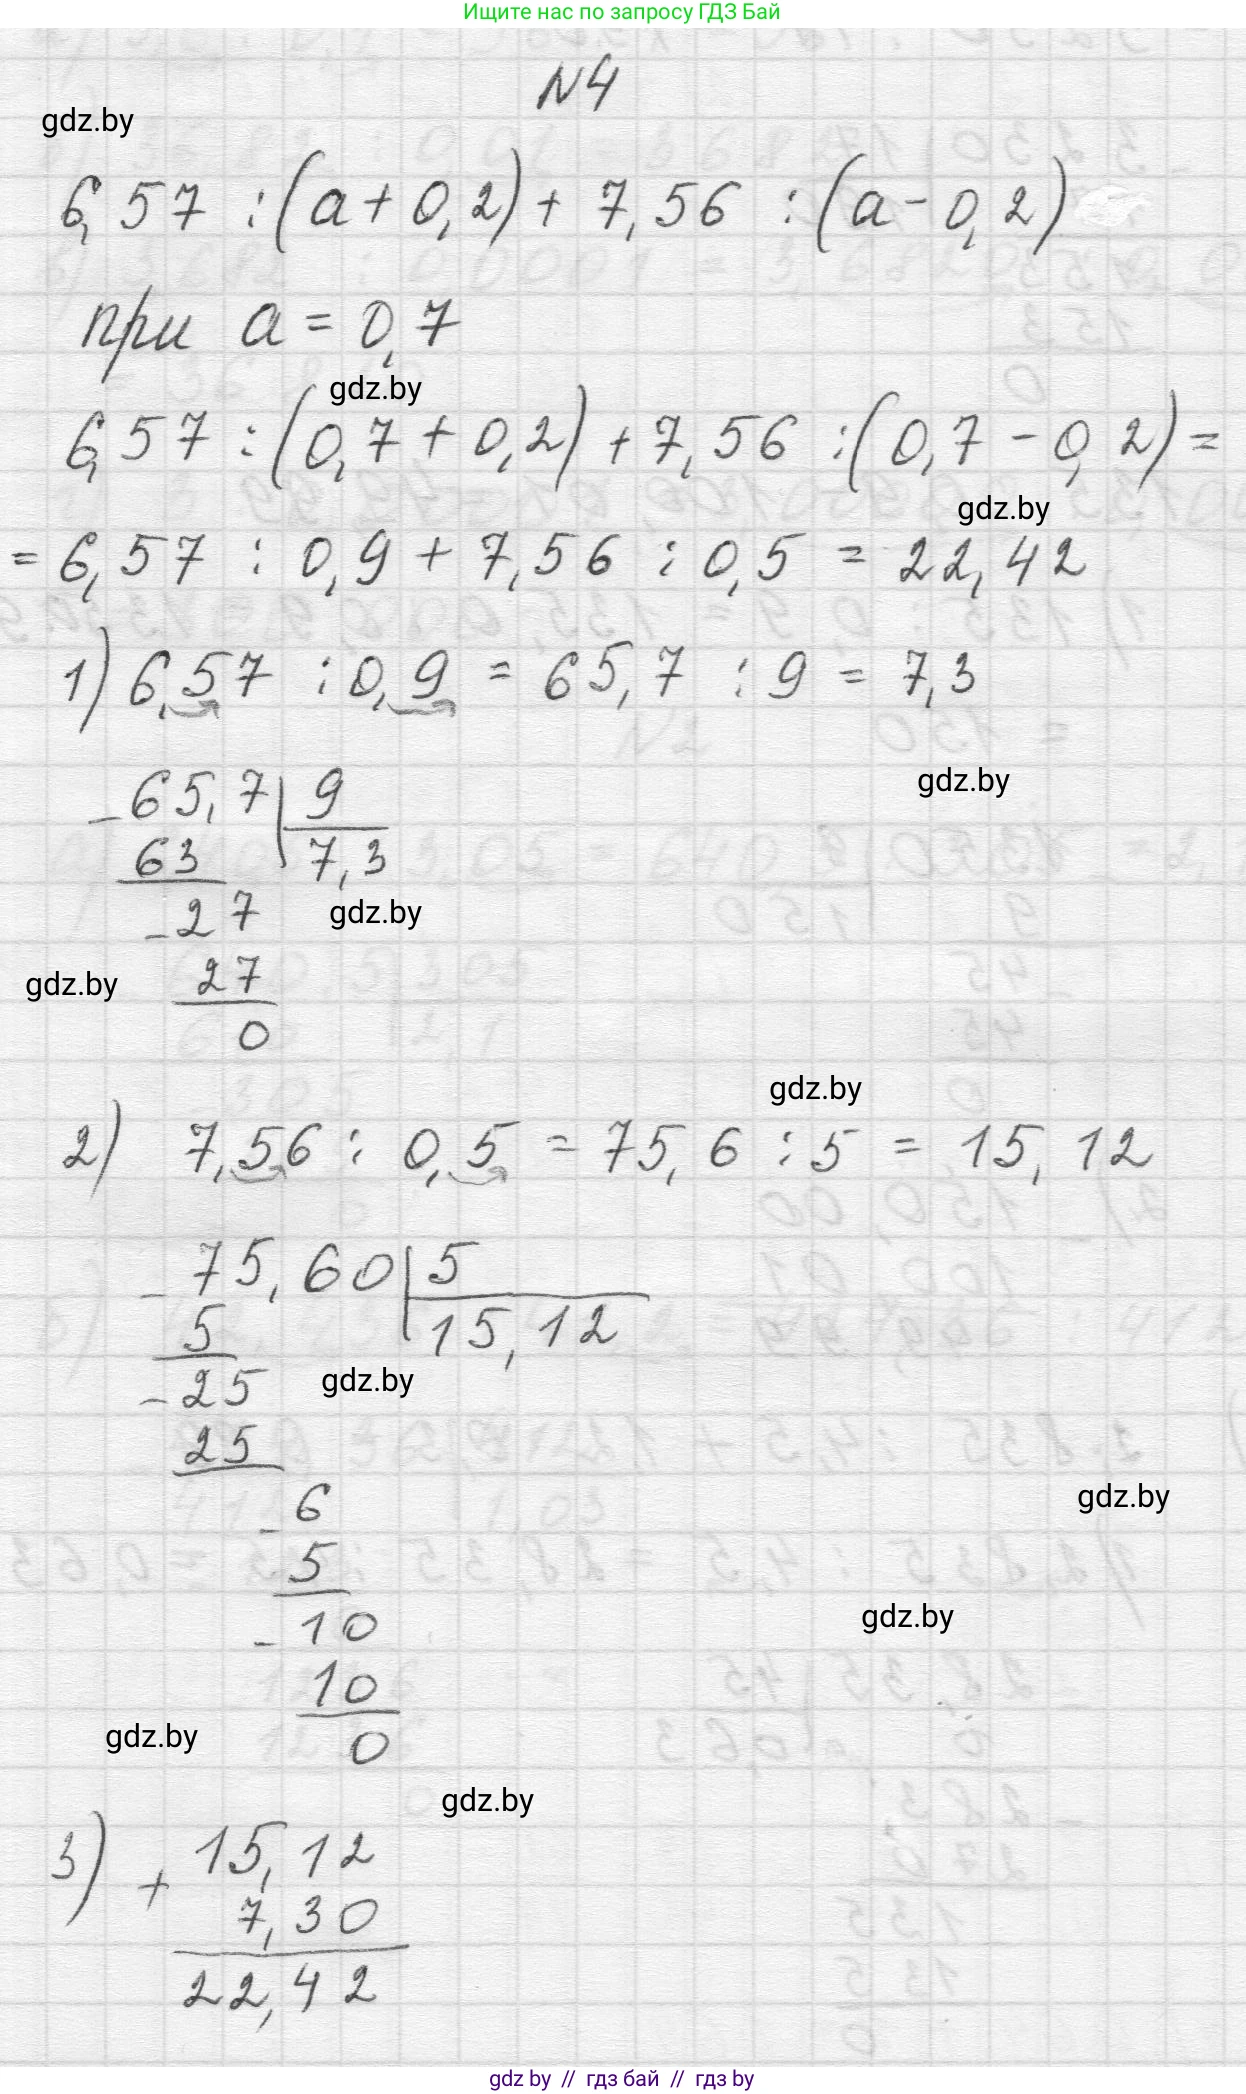 Ищите нас по запросу ГДЗ Бай
N4
gdz.by
6,57 : (a + 0,2) + 7,56 : (a - 0,2)
при a = 0,7
gdz.by
6,57 : (0,7 + 0,2) + 7,56 : (0,7 - 0,2) =
gdz.by
= 6,57 : 0,9 + 7,56 : 0,5 = 22,42
1) 6,57 : 0,9 = 65,7 : 9 = 7,3
gdz.by
- 65,7 | 9
63 7,3
- 27
gdz.by
gdz.by
27
0
gdz.by
2) 7,56 : 0,5 = 75,6 : 5 = 15,12
- 75,60 | 5
5 15,12
- 25
gdz.by
25
- 6
gdz.by
5
- 10
gdz.by
10
gdz.by
0
gdz.by
3) + 15,12
7,30
22,42
gdz by // гдз бай // gdz by